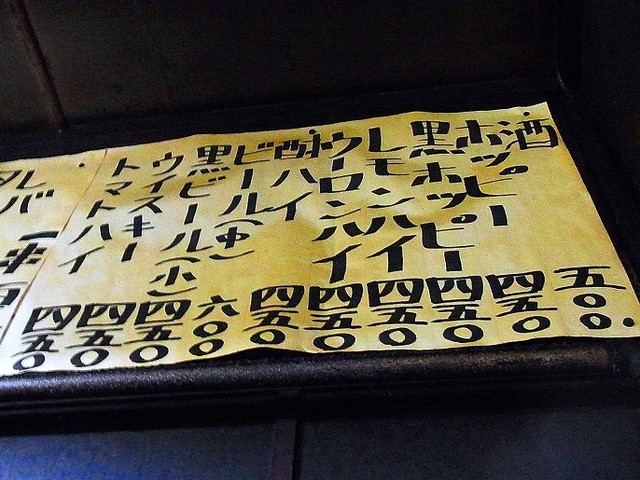 酒 五〇〇
ホッピー 四五〇
黒ホッピー 四五〇
レモンハイ 四五〇
ウーロンハイ 四五〇
酎ハイ 四五〇
ビール(中) 六〇〇
黒ビール(小) 四五〇
ウイスキー 四五〇
トマトハイ 四五〇
レバ
タ